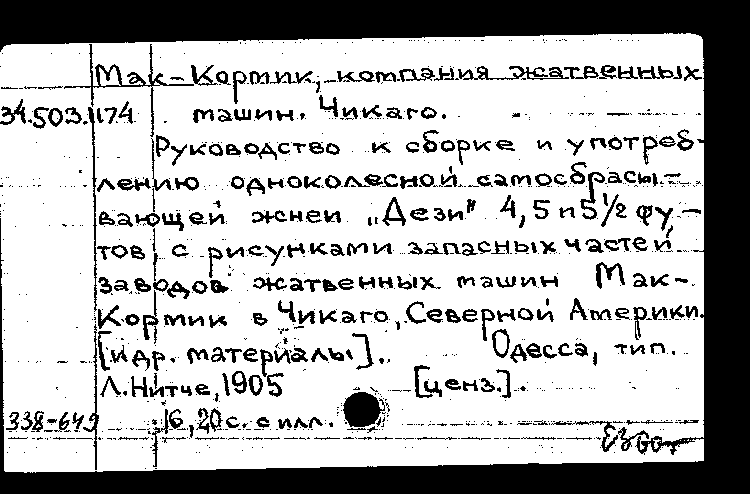 Мак-Кормик, компания жатвенных
34.503.1174 машин. Чикаго.
Руководство к сборке и употреб-
лению одноколесной самосбрасы-
вающей жнеи „Дези" 4,5 и 5 1/2 фу-
тов, с рисунками запасных частей
заводов жатвенных машин Мак-
Кормик в Чикаго, Северной Америки.
[и др. материалы]. Одесса, тип.
Л. Нитче, 1905 [ценз.].
338-649 16, 20 с. с илл.